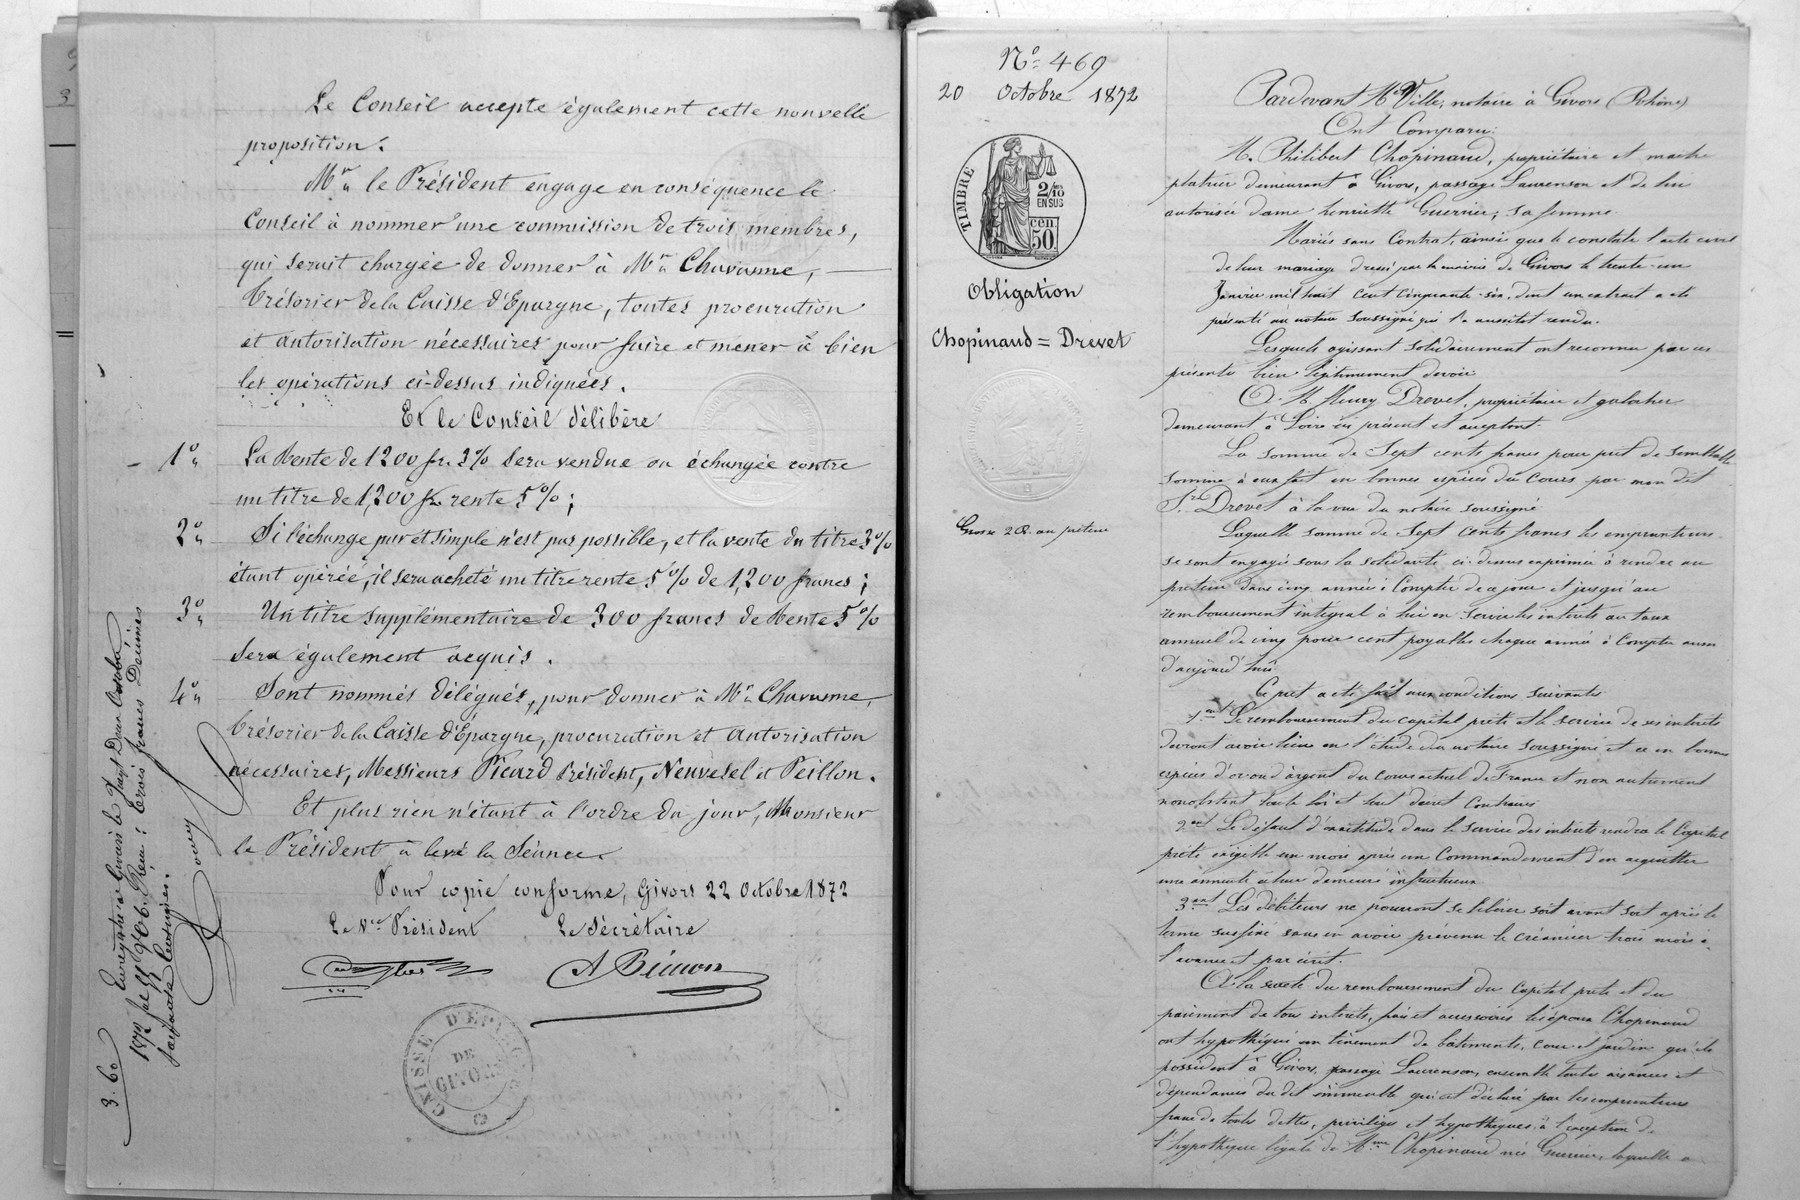 Le Conseil accepte également cette nouvelle
proposition.
Mr. le Président engage en conséquence le
Conseil à nommer une commission de trois membres,
qui serait chargée de donner à Mr. Chavanne,
trésorier de la Caisse d'Epargne, toutes procuration
et autorisation nécessaires pour faire et mener à bien
les opérations ci-dessus indiquées.
Et le Conseil délibère
1° La Rente de 1200 fr. 3% sera vendue ou échangée contre
un titre de 1,200 fr. rente 5%;
2° Si l'échange pur et simple n'est pas possible, et la vente du titre 3%
étant opérée, il sera acheté un titre rente 5% de 1,200 francs;
3° Un titre supplémentaire de 300 francs de Rente 5%
sera également acquis.
4° Sont nommés délégués, pour donner à Mr. Chavanne,
trésorier de la Caisse d'Épargne, procuration et autorisation
nécessaires, Messieurs Picard Président, Neuvesel et Peillon.
Et plus rien n'étant à l'ordre du jour, Monsieur
le Président a levé la Séance.
Pour copie conforme, Givors 22 Octobre 1872
Le Vce Président Le Sécrétaire
CAISSE D'EPARGNE
DE
GIVORS
Enregistré à Givors le Vingt Deux Octobre
1872 Reçu: trois francs Décimes
soixante centimes.
3.60
N° 469
20 Octobre 1872
TIMBRE
2/10
EN SUS
50 cen.
Obligation
Chopinaud = Drevet
Grosse au prêteur
Pardevant Me Ville, notaire à Givors (Rhône)
Ont Comparu:
M. Philibert Chopinaud, propriétaire et maitre
platrier demeurant à Givors, passage Laurenson et de lui
autorisée dame henriette Guerrier, sa femme.
Mariés sans Contrat, ainsi que le constate l'acte civil
de leur mariage dressé par la mairie de Givors le trente-un
Janvier mil huit cent cinquante-six, dont un extrait a été
présenté au notaire soussigné qui l'a aussitot rendu.
Lesquels agissant solidairement ont reconnu par ces
présentes bien légitimement devoir
A M. fleury Drevet, propriétaire et galocher
demeurant à Loire ici présent et acceptant.
La somme de Sept cents francs pour pret de semblable
somme à eux fait en bonnes espèces du Cours par mon dit
Sr. Drevet à la vue du notaire soussigné
Laquelle somme de Sept Cents francs les emprunteurs
se sont engagés sous la solidarité ci-dessus exprimée à rendre au
prêteur dans cinq années à Compter de ce jour et jusqu'au
remboursement intégral à lui en servir les intérêts au taux
annuel de cinq pour cent payables chaque année à Compter aussi
d'aujourd'hui
Ce pret a été fait aux conditions suivantes
1ent Le remboursement du capital prêté et le service de ses intérêts
devront avoir lieu en l'étude du notaire soussigné et ce en bonnes
espèces d'or ou d'argent du Cours actuel de France et non autrement
nonobstant toute loi et tout décret Contraires
2ent Le défaut d'exactitude dans le service des intérêts rendra le Capital
prêté exigible un mois après un Commandement d'en acquitter
une annuité à leur demeure infructueux
3ent Les débiteurs ne pourront se libérer soit avant soit après le
terme susfixé sans en avoir prévenu le créancier trois mois à
l'avance et par écrit.
A la sureté du remboursement du Capital prêté et du
paiement de tous intérêts, frais et accessoires les époux Chopinaud
ont hypothéqué un tènement de bâtiments, cour et jardin qu'ils
possèdent à Givors, passage Laurenson, ensemble toutes aisances et
dépendances du dit immeuble qui est déclaré par les emprunteurs
franc de toutes dettes, privilèges et hypothèques à l'exception de
l'hypothèque légale de Mme Chopinaud née Guerrier, laquelle a